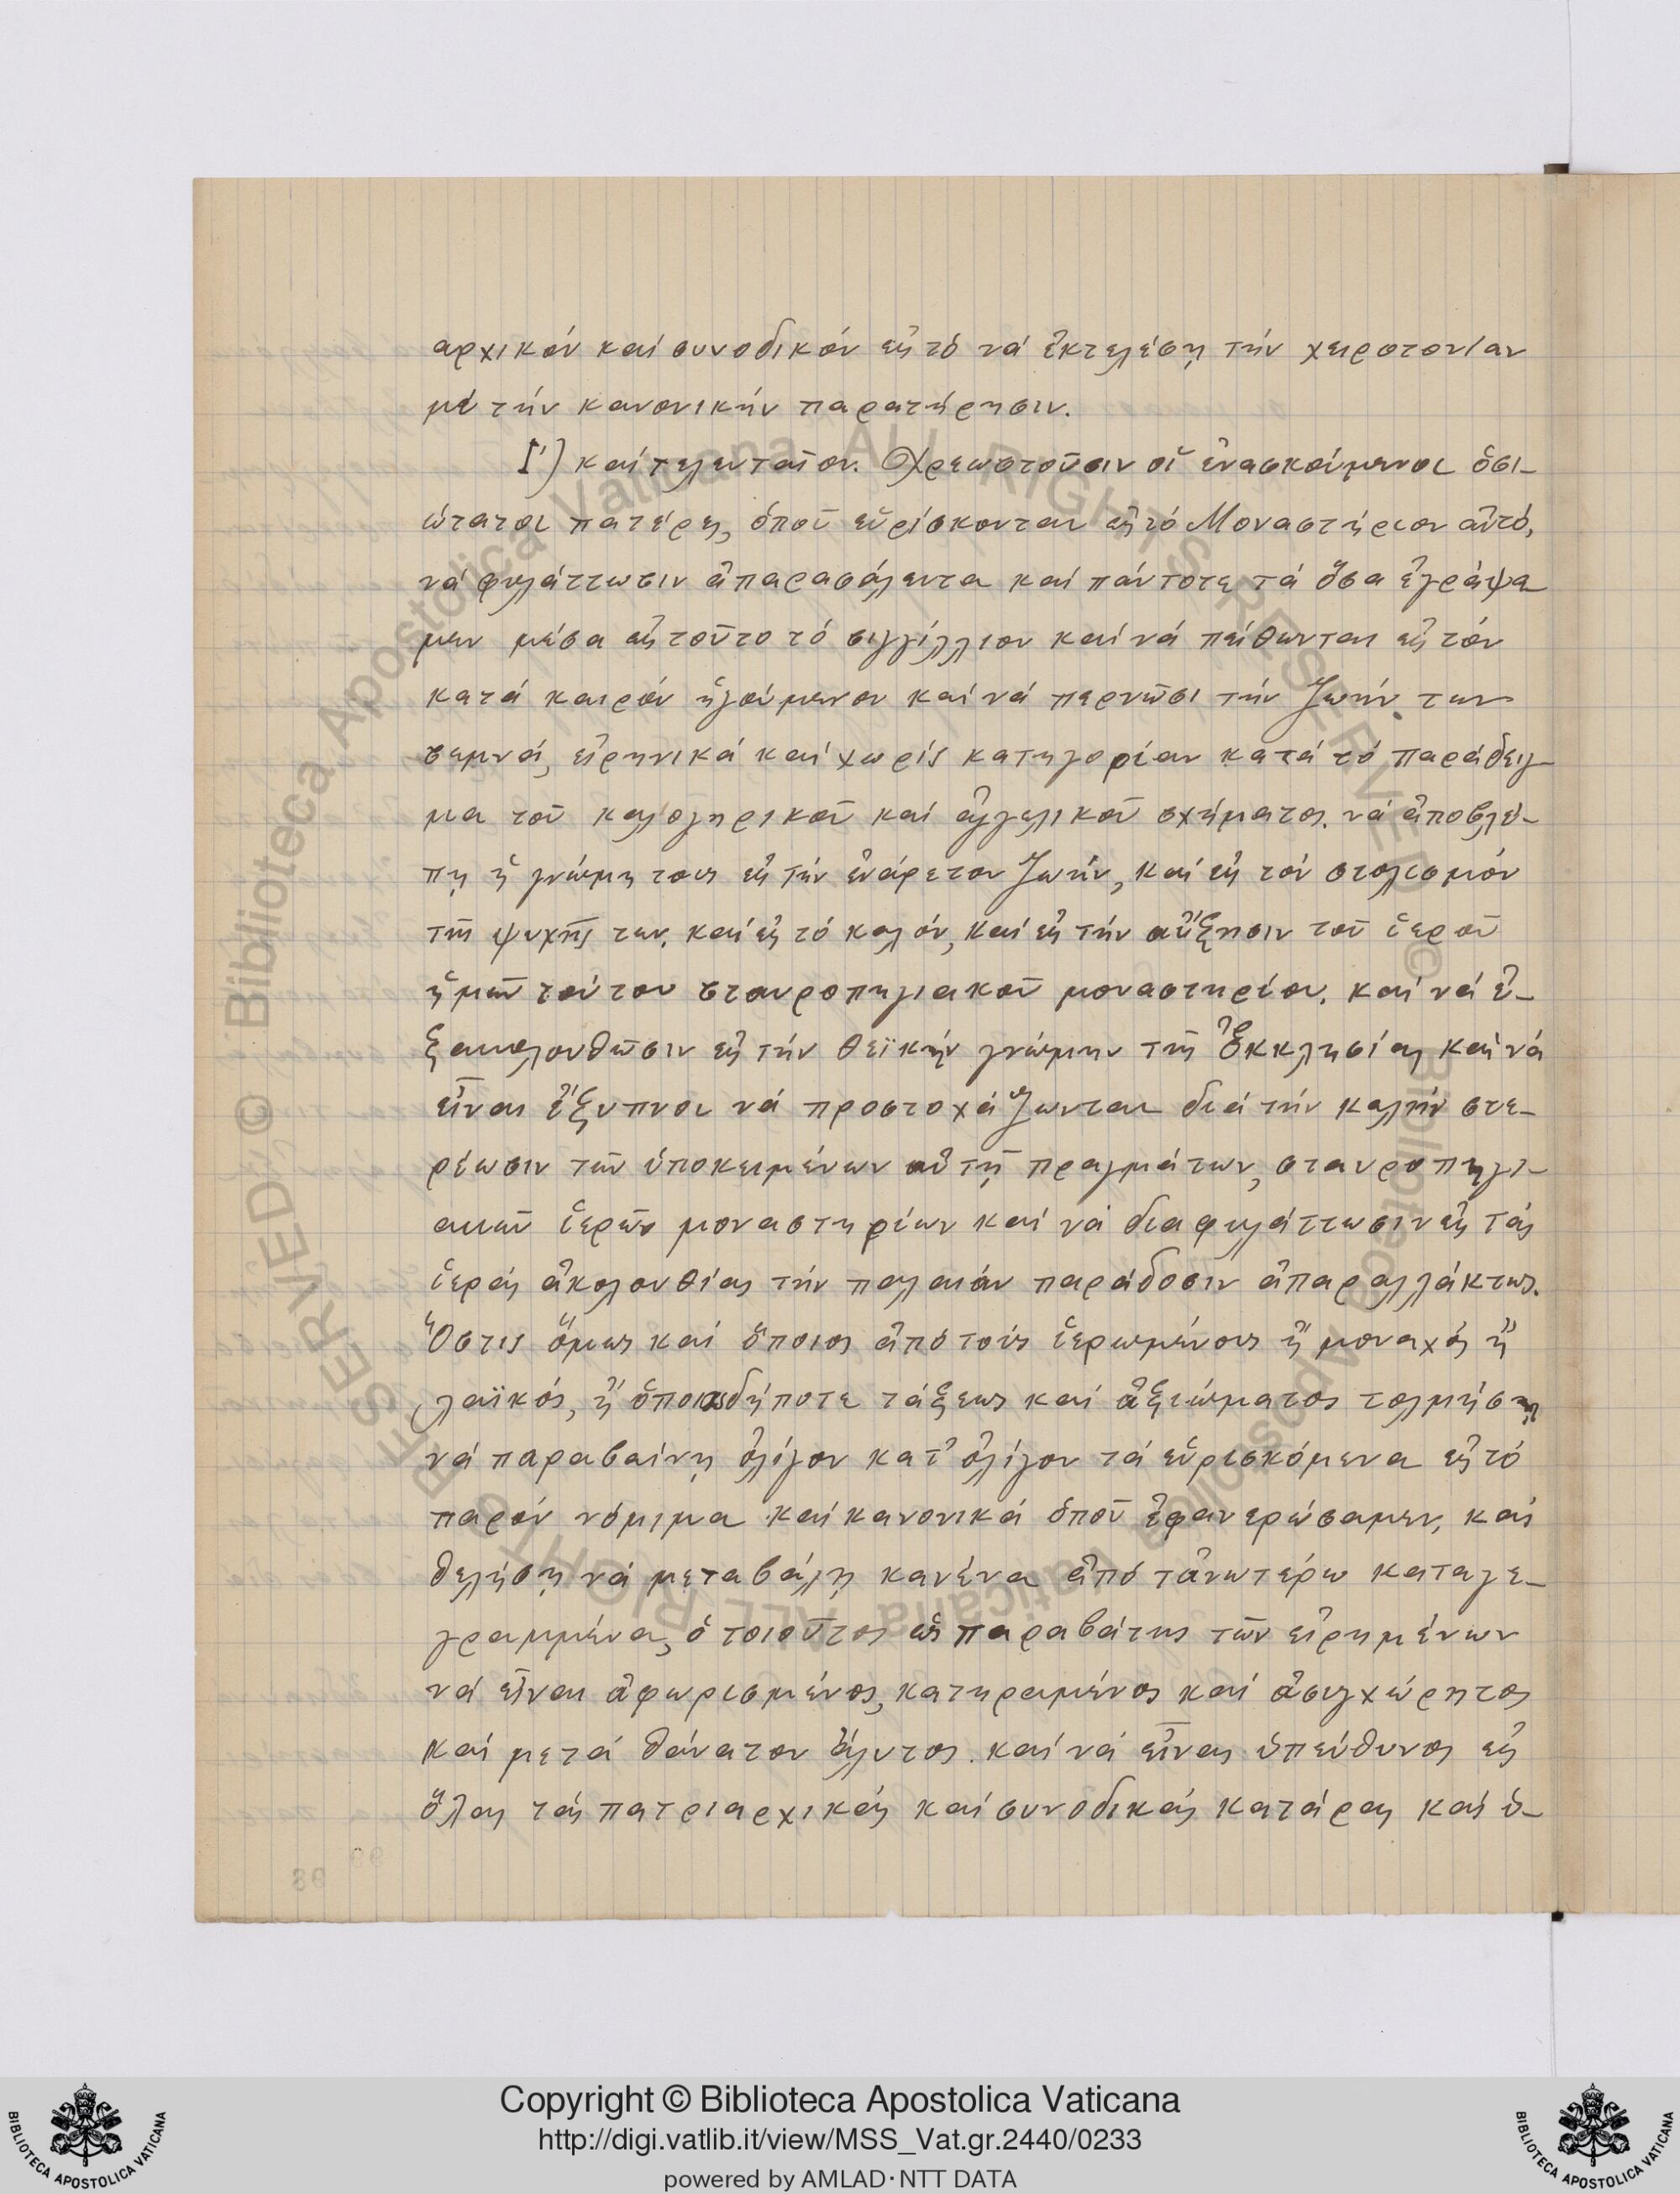 αρχικόν καί συνοδικόν εἰς τό νά ἐκτελέσῃ τήν χειροτονίαν
μέ τήν κανονικήν παρατήρησιν.
Γ') καί τελευταῖον. Χρεωστοῦσιν οἱ ἐνασκούμενοι ὁσι-
ώτατοι πατέρες, ὁποῦ εὑρίσκονται εἰς τό Μοναστήριον αὐτό,
νά φυλάττωσιν ἀπαρασάλευτα καί πάντοτε τά ὅσα ἐγράψα
μεν μέσα εἰς τοῦτο τό σιγγίλλιον καί νά πείθωνται εἰς τόν
κατά καιρόν ἡγούμενον καί νά περνῶσι τήν ζωήν των
σεμνά, εἰρηνικά καί χωρίς κατηγορίαν κατά τό παράδειγ
μα τοῦ καλογηρικοῦ καί ἀγγελικοῦ σχήματος. νά ἀποβλέ-
πῃ ἡ γνώμη τους εἰς τήν ἐνάρετον ζωήν, καί εἰς τόν στολισμόν
τῆς ψυχῆς των. καί εἰς τό καλόν, καί εἰς τήν αὔξησιν τοῦ ἱεροῦ
ἡμῶν τούτου σταυροπηγιακοῦ μοναστηρίου. καί νά ἐ-
ξακολουθῶσιν εἰς τήν θεϊκήν γνώμην τῆς Ἐκκλησίας καί νά
εἶναι ἔξυπνοι νά προστοχάζωνται διά τήν καλήν στε-
ρέωσιν τῶν ὑποκειμένων αὐτῇ πραγμάτων, σταυροπηγι-
ακῶν ἱερῶν μοναστηρίων καί νά διαφυλάττωσιν εἰς τάς
ἱεράς ἀκολουθίας τήν παλαιάν παράδοσιν ἀπαραλλάκτως.
Ὅστις ὅμως καί ὅποιος ἀπό τούς ἱερωμένους ἤ μοναχός ἤ
λαϊκός, ἤ ὁποιασδήποτε τάξεως καί ἀξιώματος τολμήσῃ
νά παραβαίνῃ ὀλίγον κατ' ὀλίγον τά εὑρισκόμενα εἰς τό
παρόν νόμιμα καί κανονικά ὁποῦ ἐφανερώσαμεν, καί
θελήσῃ νά μεταβάλῃ κανένα ἀπό τἀνωτέρω καταγε-
γραμμένα, ὁ τοιοῦτος ὡς παραβάτης τῶν εἰρημένων
νά εἶναι ἀφωρισμένος, κατηραμένος καί ἀσυγχώρητος
καί μετά θάνατον ἄλυτος. καί νά εἶναι ὑπεύθυνος εἰς
ὅλας τάς πατριαρχικάς καί συνοδικάς κατάρας καί ὑ-
Copyright © Biblioteca Apostolica Vaticana
http://digi.vatlib.it/view/MSS_Vat.gr.2440/0233
powered by AMLAD·NTT DATA